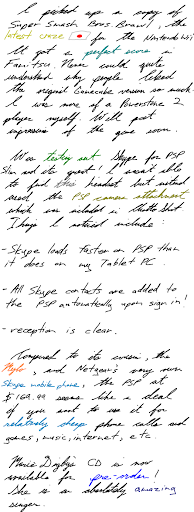 I picked up a copy of
Super Smash Bros Brawl, the
latest craze for the Nintendo Wii
It got a perfect score in
Famitsu. Never could quite
understand why people liked
the original Gamecube version so much.
I was more of a Powerstone 2
player myself. We'll post
impressions of the game soon.
Was testing out Skype for PSP
Slim and its great! I wasn't able
to find the headset but instead
used the PSP camera attachment
which was included in
things I noticed include:
- Skype loads faster on PSP than
it does on my Tablet PC.
- All Skype contacts are added to
the PSP automatically upon sign in!
- reception is clear.
Compared to its cousin, the
Mylo, and Netgear's very own
Skype mobile phone, the PSP at
$169.99 seems like a deal
if you want to use it for
relatively cheap phone calls and
games, music, internet, etc.
CD is now
available for pre-order!
She is an absolutely amazing
singer.